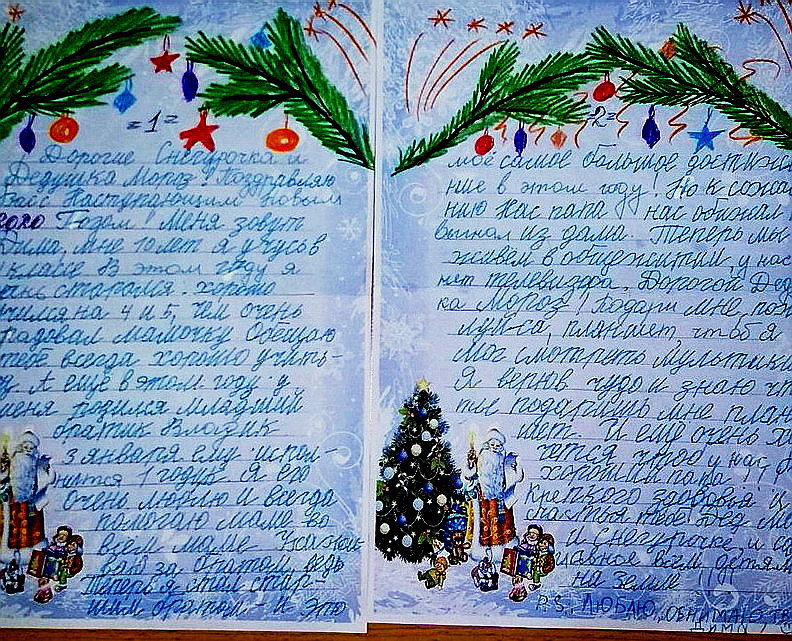 =1=
Дорогие Снегурочка и
Дедушка Мороз! Поздравляю
Вас с Наступающим Новым
Годом! Меня зовут
Дима, мне 10 лет я учусь в
классе. В этом году я
старался. хорошо
учился на 4 и 5, чем очень
радовал мамочку. Обещаю
тебе всегда хорошо учить-
А ещё в этом году у
меня родился младший
братик Владик
3 января ему испол-
нится 1 годик. Я его
очень люблю и всегда
помогаю маме во
всём маме. Ухажи-
ваю за братом, ведь
Теперь я стал стар-
шим братом - и это
=2=
моё самое большое достиже
ние в этом году! Но к сожале
нию Нас папа нас обижал
выгнал из дома. Теперь мы
живем в общежитии, у нас
нет телевизора. Дорогой Дед
ка Мороз! Подари мне, пож
луйса, планшет, чтобы я
мог смотреть мультики
Я верю в чудо и знаю чт
ты подаришь мне план
шет. И ещё очень хо
чется чтоб у нас был
хороший папа!
Крепкого здоровья и
счастья тебе Дед Мо
и Снегурочке, и са
главное всем детям
на земле!
P.S., Люблю, обнимаю, тв
Дима